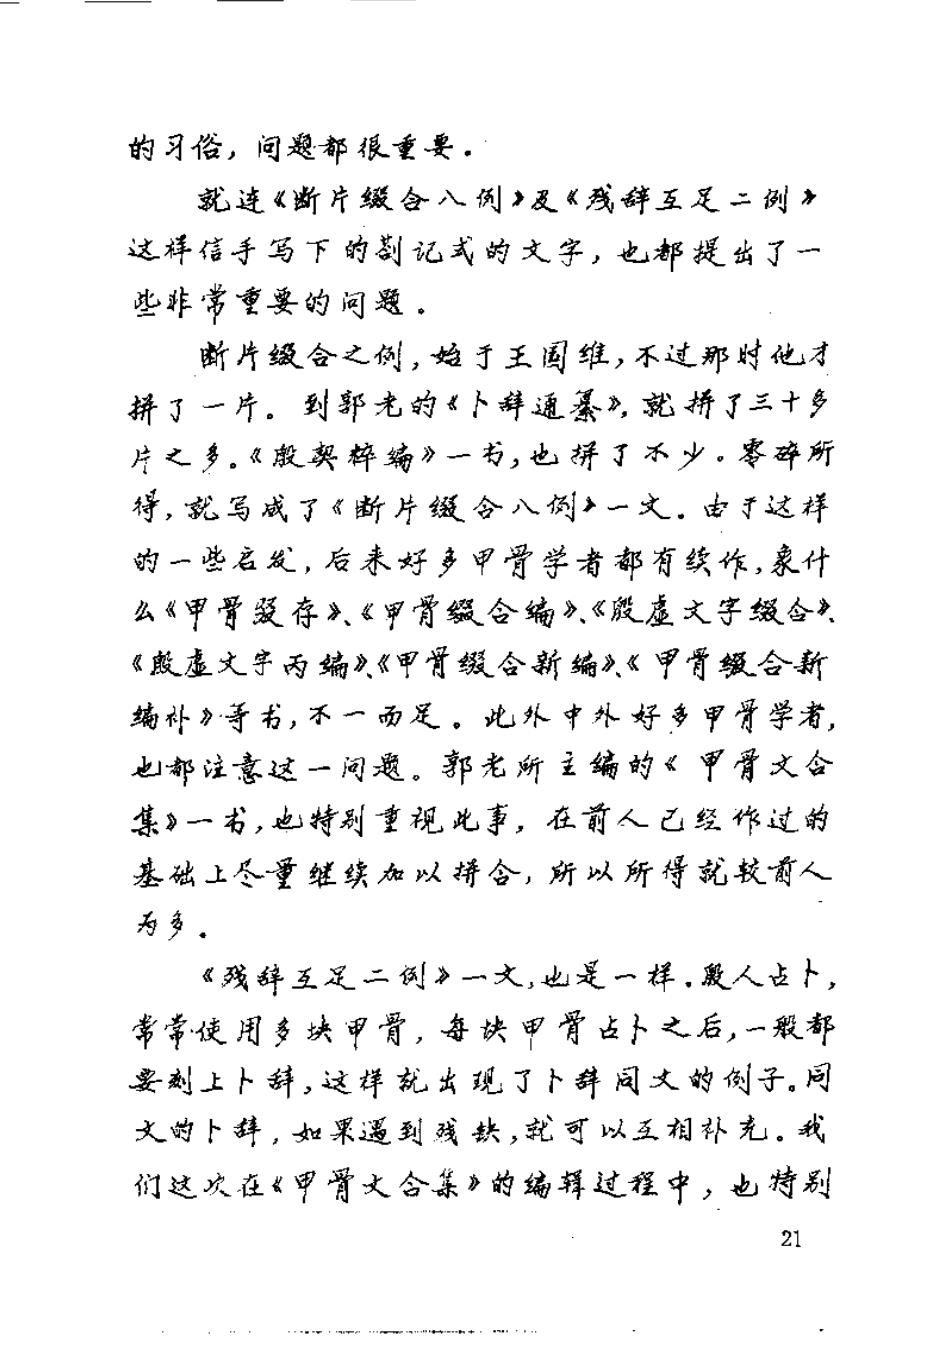 的习俗，问题都很重要。
就连《断片缀合八例》及《残辞互足二例》
这样信手写下的劄记式的文字，也都提出了一
些非常重要的问题。
断片缀合之例，始于王国维，不过那时他才
拼了一片。到郭老的《卜辞通纂》，就拼了三十多
片之多。《殷契粹编》一书，也拼了不少。零碎所
得，就写成了《断片缀合八例》一文。由于这样
的一些启发，后来好多甲骨学者都有续作，象什
么《甲骨叕存》、《甲骨缀合编》、《殷虚文字缀合》、
《殷虚文字丙编》、《甲骨缀合新编》、《甲骨缀合新
编补》等书，不一而足。此外中外好多甲骨学者，
也都注意这一问题。郭老所主编的《甲骨文合
集》一书，也特别重视此事，在前人已经作过的
基础上尽量继续加以拼合，所以所得就较前人
为多。
《残辞互足二例》一文，也是一样。殷人占卜，
常常使用多块甲骨，每块甲骨占卜之后，一般都
要刻上卜辞，这样就出现了卜辞同文的例子。同
文的卜辞，如果遇到残缺，就可以互相补充。我
们这次在《甲骨文合集》的编辑过程中，也特别
21